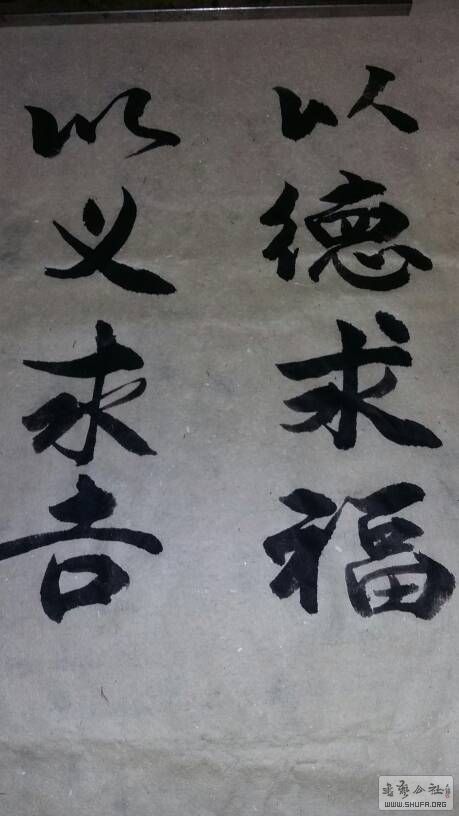 以德求福
以义求吉
书艺公社
WWW.SHUFA.ORG